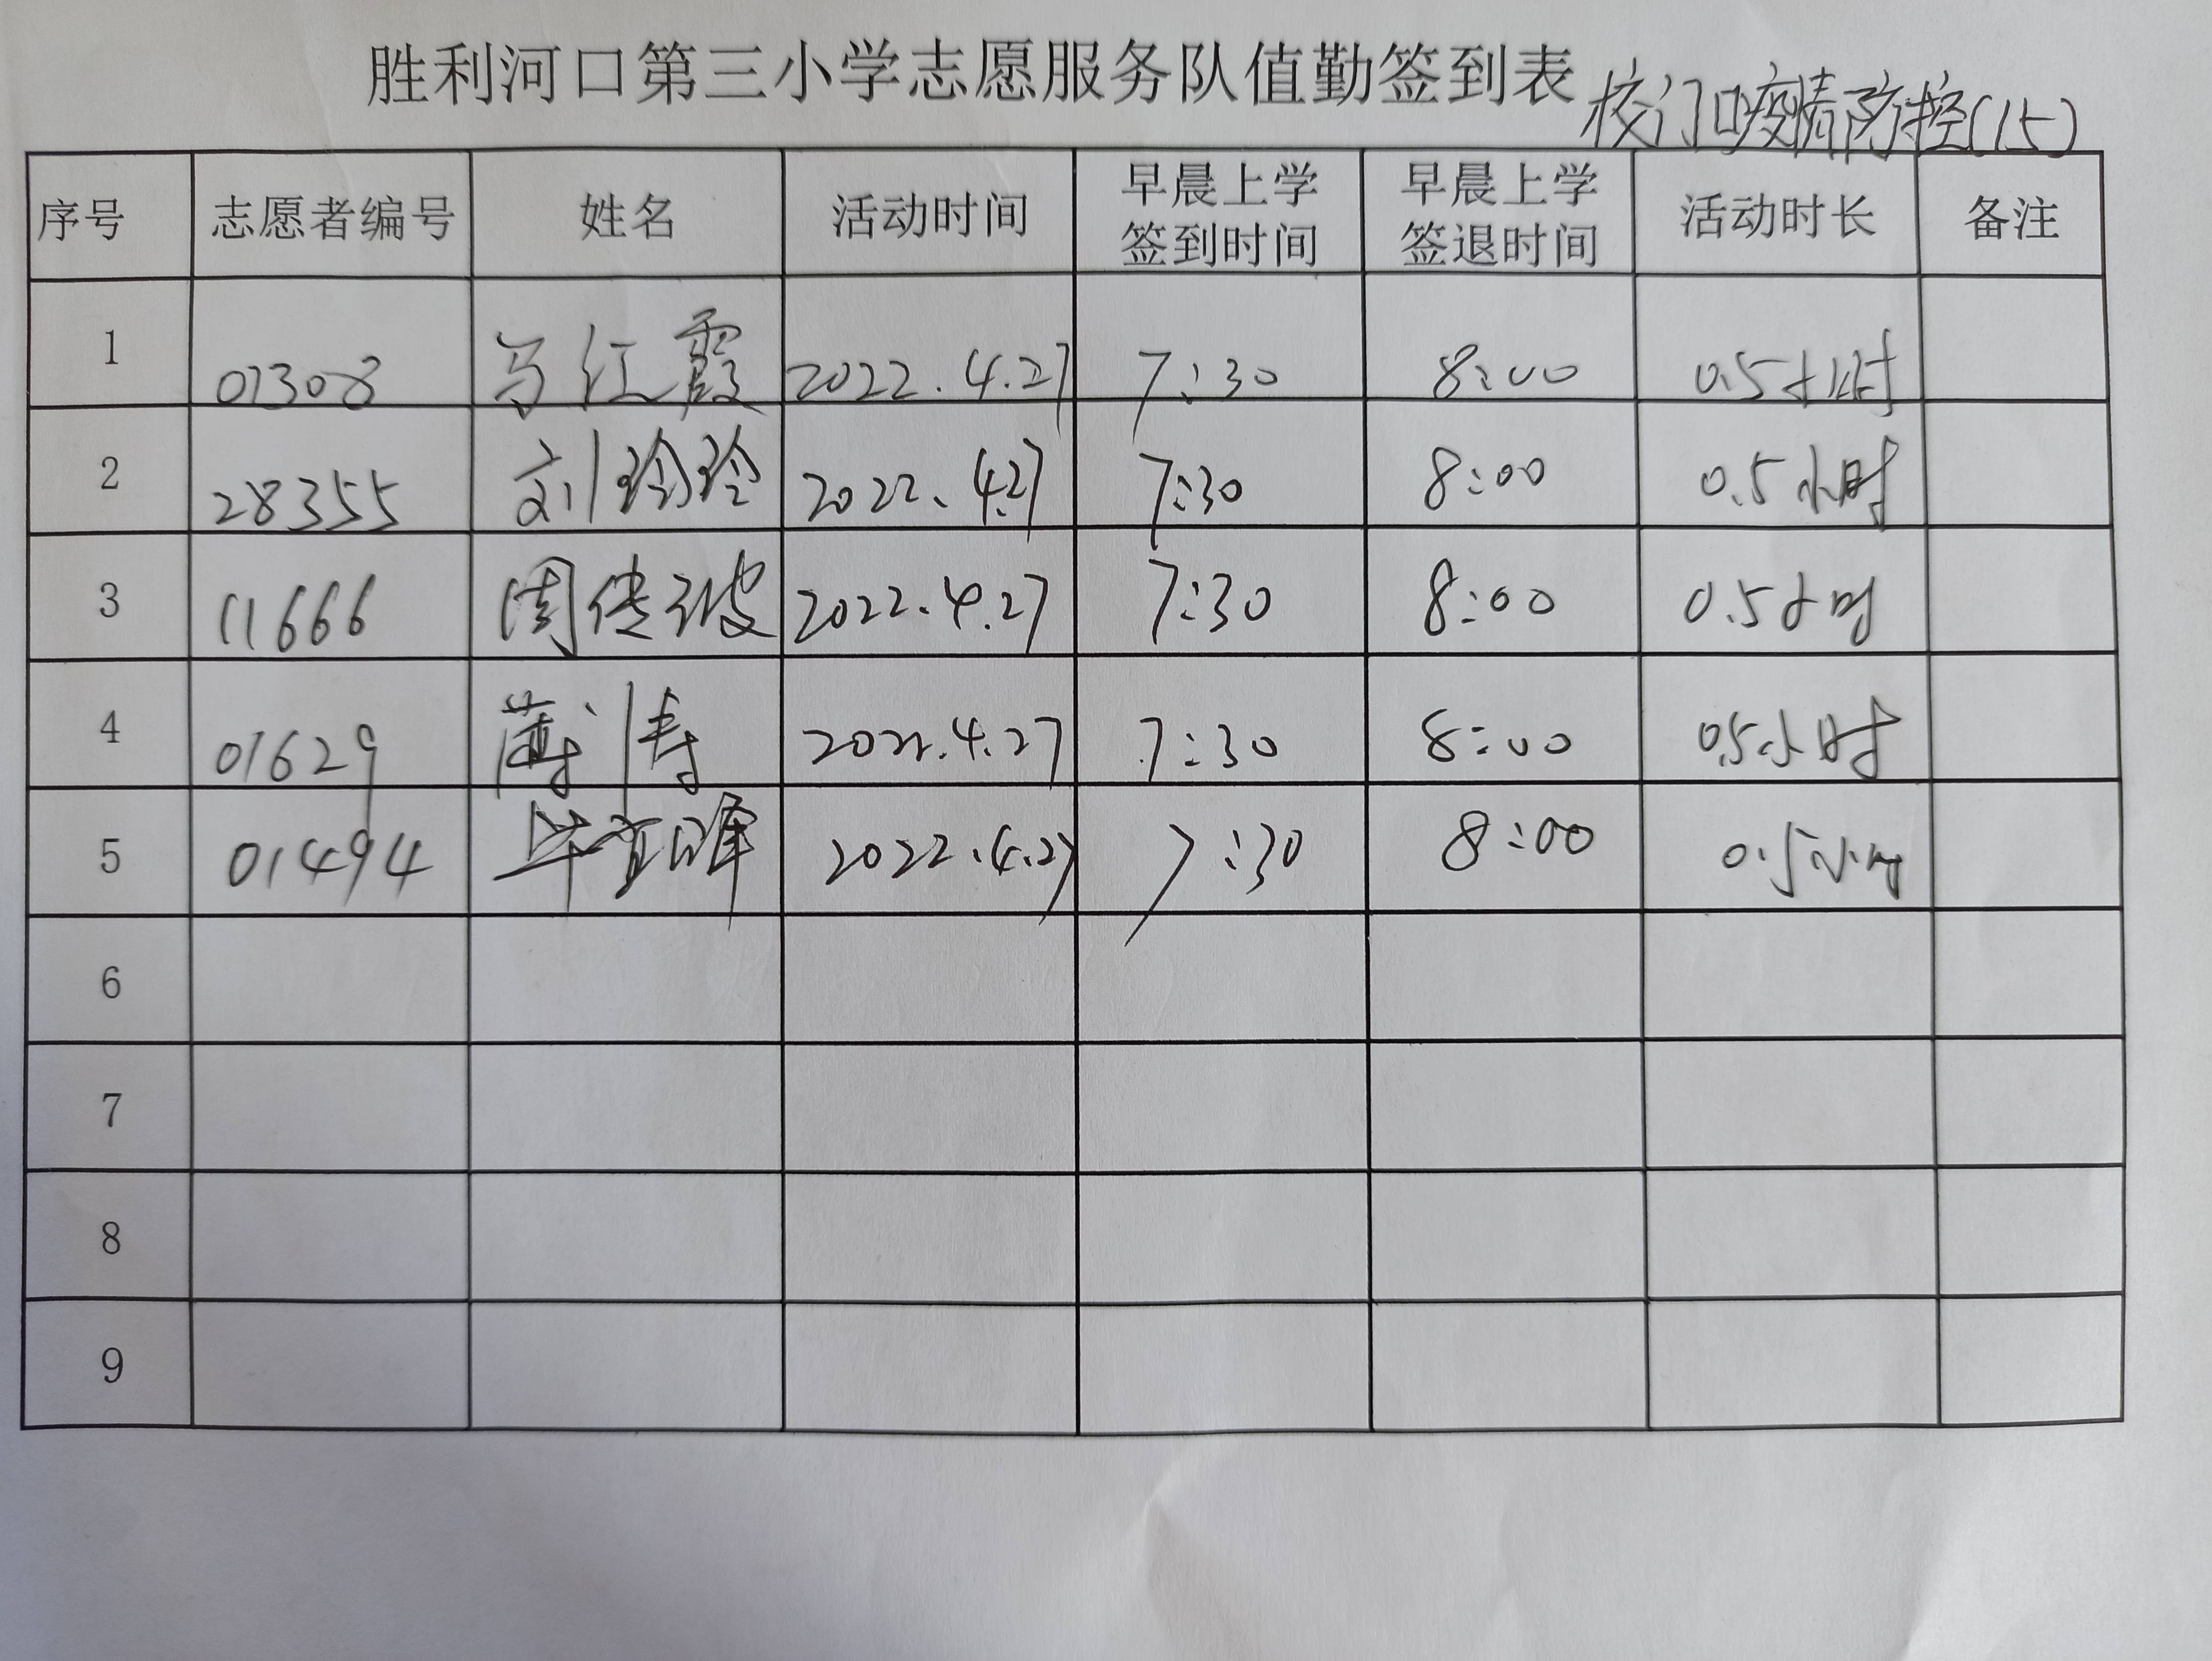 胜利河口第三小学志愿服务队值勤签到表 校门口疫情防控(15)
序号 志愿者编号 姓名 活动时间 早晨上学签到时间 早晨上学签退时间 活动时长 备注
1 01308 马红霞 2022.4.27 7:30 8:00 0.5小时
2 28355 刘玲玲 2022.4.27 7:30 8:00 0.5小时
3 11666 周传波 2022.4.27 7:30 8:00 0.5小时
4 01629 薄涛 2022.4.27 7:30 8:00 0.5小时
5 01494 毕 2022.4.27 7:30 8:00 0.5小时
6
7
8
9